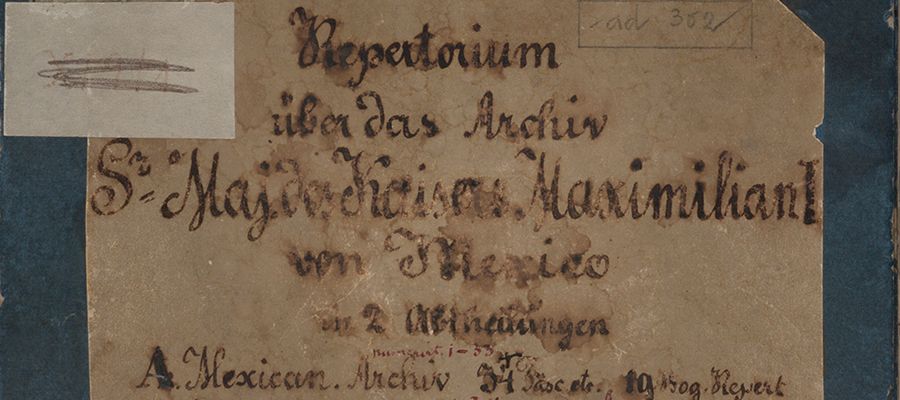 ad 362
Repertorium
über das Archiv
Sr Maj des Kaisers Maximilian I
von Mexico
in 2 Abtheilungen
numerirt 1-33
A. Mexican. Archiv 34 Fasc. etc. 19 Bog. Repert